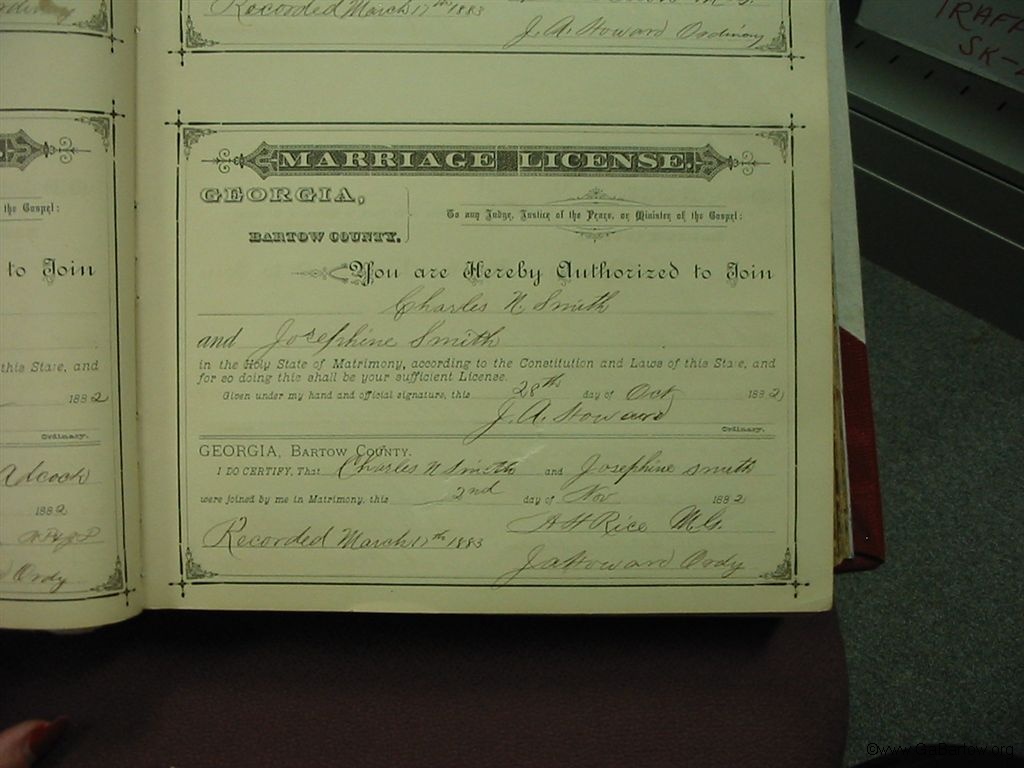 Recorded March 17th 1883
J. A. Howard Ordinary
the Gospel:
to Join
this State, and
1882
Ordinary.
Adcock
1882
Ordy
MARRIAGE LICENSE.
GEORGIA,
BARTOW COUNTY.
To any Judge, Justice of the Peace, or Minister of the Gospel:
You are Hereby Authorized to Join
Charles N. Smith
and Josephine Smith
in the Holy State of Matrimony, according to the Constitution and Laws of this State, and
for so doing this shall be your sufficient License.
Given under my hand and official signature, this 28th day of Oct 1882
J. A. Howard
Ordinary.
GEORGIA, BARTOW COUNTY.
I DO CERTIFY, That Charles N Smith and Josephine Smith
were joined by me in Matrimony, this 2nd day of Nov 1882
A H Rice M.G.
Recorded March 17th 1883
J A Howard Ordy
TRAFF
SK-